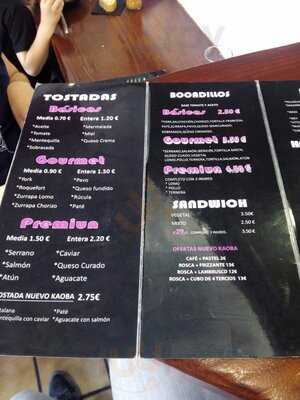 TOSTADAS
Básicas
Media 0.70 € Entera 1.20 €
*Aceite *Mermelada
*Tomate *Miel
*Mantequilla *Queso Crema
*Sobrasada
Gourmet
Media 0.90 € Entera 1.50 €
*York *Pavo
*Roquefort *Queso fundido
*Zurrapa Lomo *Rúcula
*Zurrapa Chorizo *Paté
Premiun
Media 1.50 € Entera 2.20 €
*Serrano *Caviar
*Salmón *Queso Curado
*Atún *Aguacate
TOSTADA NUEVO KAOBA 2.75€
*Paté
*Aguacate salmón
BOCADILLOS
BASE TOMATE Y ACEITE
Básicos 2.50 €
Gourmet
Premiun
COMPLETO CON 2 INGRED.
* LOMO
* POLLO
* TERNERA
SANDWICH
VEGETAL 3.50€
MIXTO 2.50€
3.00€
OFERTAS NUEVO KAOBA
CAFÉ + PASTEL 2€
ROSCA + FRIZZANTE 15€
ROSCA + LAMBRUSCO 13€
ROSCA + CUBO DE 4 TERCIOS 13€